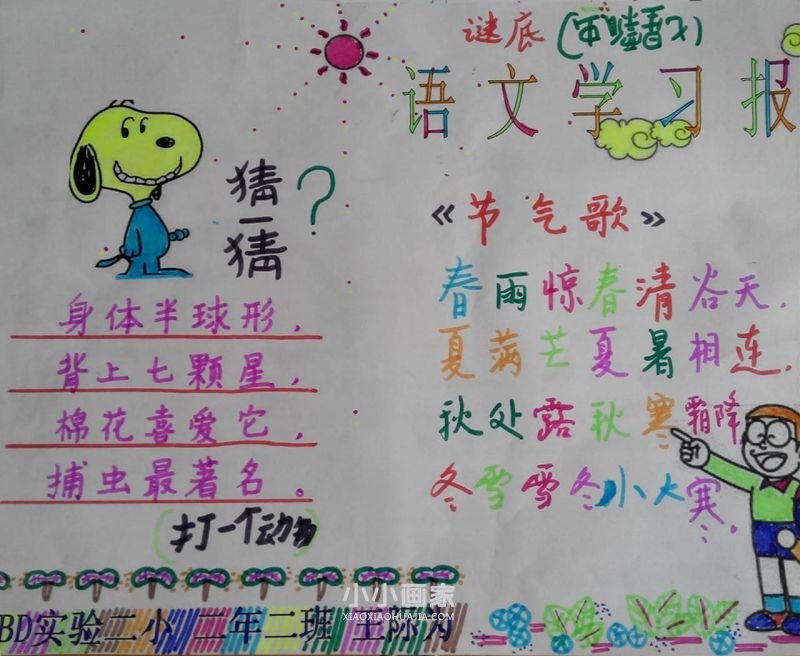 谜底（七星瓢虫）
语文学习报
猜一猜？
身体半球形，
背上七颗星，
棉花喜爱它，
捕虫最著名。
（打一个动物）
《节气歌》
春雨惊春清谷天，
夏满芒夏暑相连，
秋处露秋寒霜降
冬雪雪冬小大寒。
BD实验二小 二年二班 王
小小画家
XIAOXIAOHUAJIA.COM